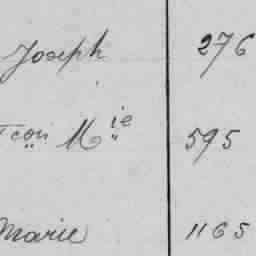 Joseph 276
Mie 595
Marie 1165